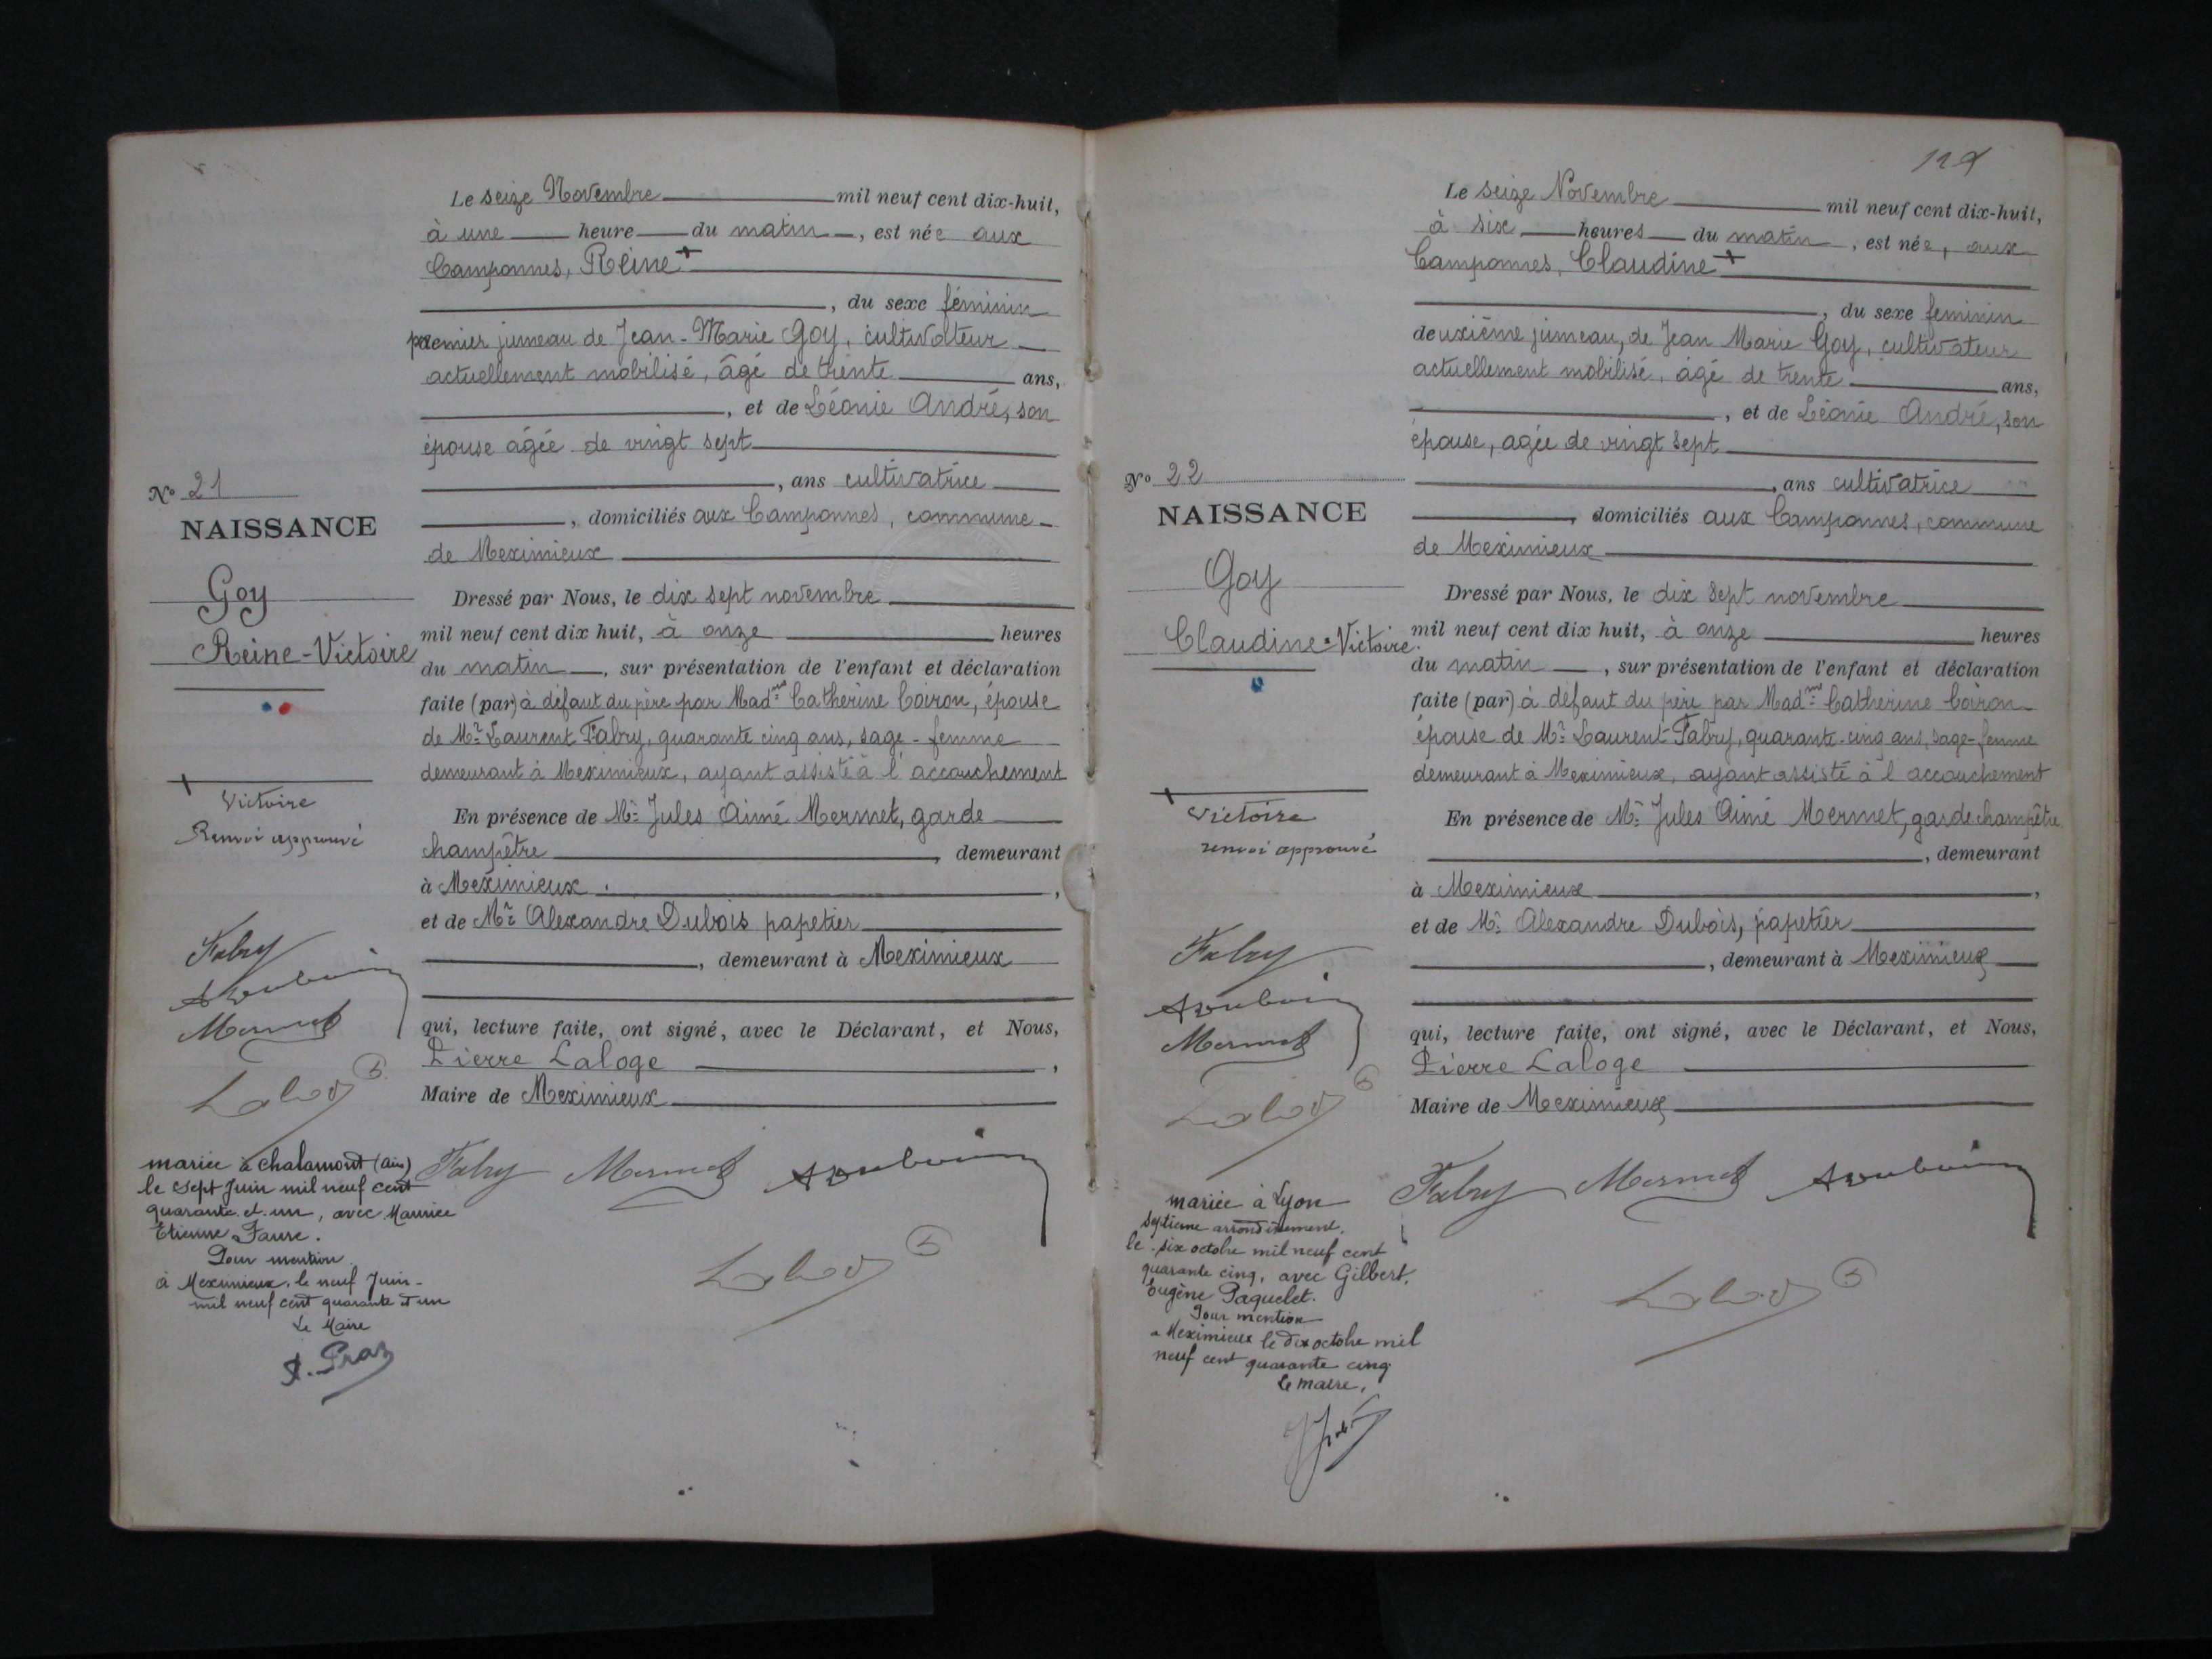 Le seize Novembre mil neuf cent dix-huit,
à une heure du matin, est née aux
Camponnes, Reine +
, du sexe féminin
premier jumeau de Jean-Marie Goy, cultivateur
actuellement mobilisé, âgé de trente ans,
, et de Léonie André, son
épouse âgée de vingt sept
, ans cultivatrice
, domiciliés aux Camponnes, commune
de Meximieux
Nº 21
NAISSANCE
Goy
Reine-Victoire
Dressé par Nous, le dix sept novembre
mil neuf cent dix huit, à onze heures
du matin, sur présentation de l'enfant et déclaration
faite (par) à défaut du père par Mad.me Catherine Coiron, épouse
de Mr Laurent Fabry, quarante cinq ans, sage-femme
demeurant à Meximieux, ayant assisté à l'accouchement
+
Victoire
Renvoi approuvé
En présence de Mr Jules Aimé Mermet, garde
champêtre, demeurant
à Meximieux,
et de Mr Alexandre Dubois papetier
, demeurant à Meximieux
qui, lecture faite, ont signé, avec le Déclarant, et Nous,
Pierre Laloge,
Maire de Meximieux
Fabry
Mermet
Fabry Mermet
mariée à Chalamont (Ain)
le sept Juin mil neuf cent
quarante et un, avec Maurice
Etienne Faure.
Pour mention
à Meximieux, le neuf Juin
mil neuf cent quarante et un
Le Maire
Le seize Novembre mil neuf cent dix-huit,
à six heures du matin, est née, aux
Camponnes, Claudine +
, du sexe feminin
deuxième jumeau, de Jean Marie Goy, cultivateur
actuellement mobilisé, âgé de trente ans,
, et de Léonie André, son
épouse, agée de vingt sept
, ans cultivatrice
, domiciliés aux Camponnes, commune
de Meximieux
Nº 22
NAISSANCE
Goy
Claudine-Victoire
Dressé par Nous, le dix sept novembre
mil neuf cent dix huit, à onze heures
du matin, sur présentation de l'enfant et déclaration
faite (par) à défaut du père par Mad.me Catherine Coiron
épouse de Mr Laurent Fabry, quarante-cinq ans, sage-femme
demeurant à Meximieux, ayant assisté à l'accouchement
+
Victoire
renvoi approuvé
En présence de Mr Jules Aimé Mermet, garde champêtre
, demeurant
à Meximieux,
et de Mr Alexandre Dubois, papetier
, demeurant à Meximieux
qui, lecture faite, ont signé, avec le Déclarant, et Nous,
Pierre Laloge
Maire de Meximieux
Fabry
Mermet
Fabry Mermet
mariée à Lyon
septième arrondissement,
le six octobre mil neuf cent
quarante cinq, avec Gilbert,
Eugène Paquelet.
Pour mention
a Meximieux le dix octobre mil
neuf cent quarante cinq
Le maire,